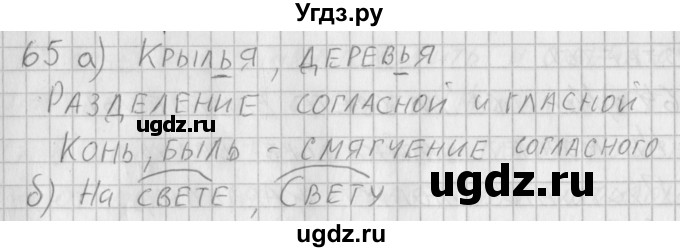 Угдз.ру
65 а) Крылья, деревья
Разделение согласной и гласной
угдз.ру ugdz.ru
Конь, быль - смягчение согласного
б) На свете, Свету
ugdz.ru ugdz.ru
ugdz.ru